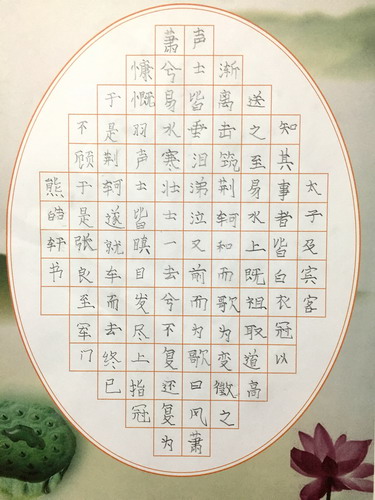 太子及宾客
知其事者皆白衣冠以
送之至易水上既祖取道高
渐离击筑荆轲和而歌为变徵之
声士皆垂泪涕泣又前而为歌曰风萧
萧兮易水寒壮士一去兮不复还复为
慷慨羽声士皆瞋目发尽上指冠
于是荆轲遂就车而去终已
不顾于是张良至军门
熊皓轩书